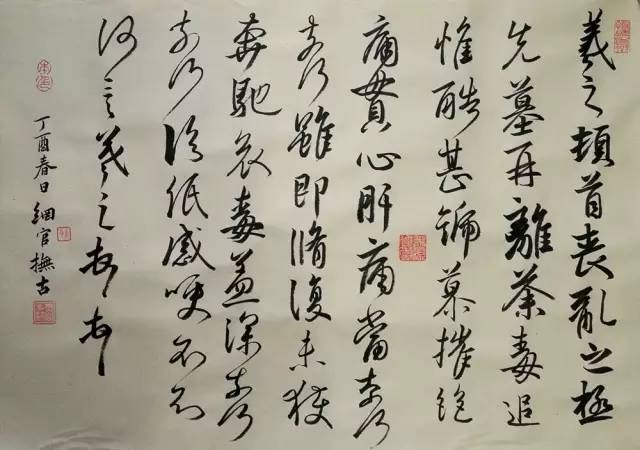 羲之頓首喪亂之極
先墓再離荼毒追
惟酷甚號慕摧絕
痛貫心肝痛當奈何
奈何雖即脩復未獲
奔馳哀毒益深奈何
奈何臨紙感哽不知
何言羲之頓首頓首
丁酉春日官撫古